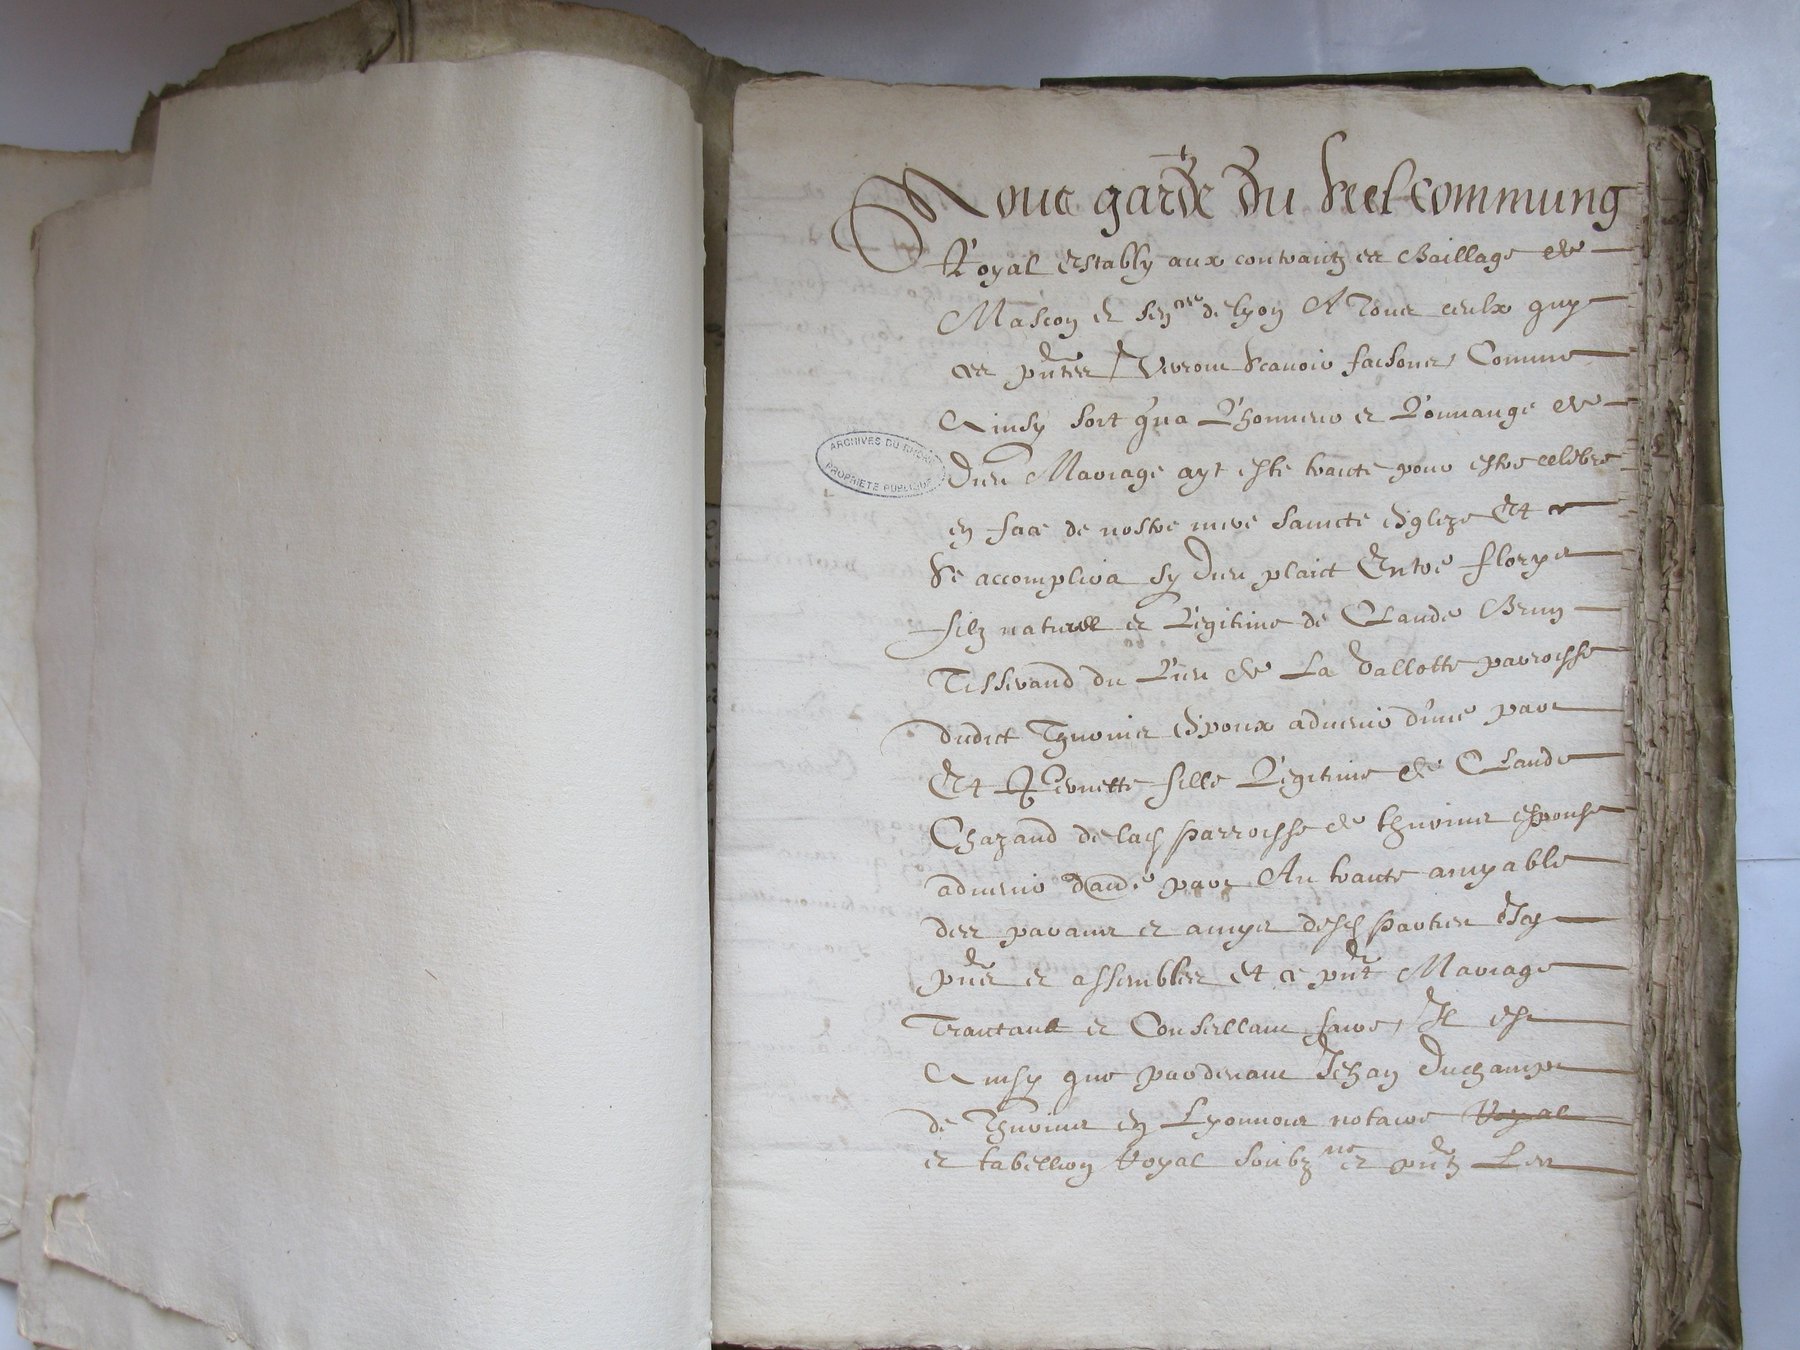 Nous garde du Seel commung
Royal Estably aux contraictz et Bailliage de
Mascon et sen^cee de Lyon A Tous ceulx quy
ces pntes Verront Scavoir faisons, Comme
Ainsy soit qu'a L'honneur et Louange de
Dieu Mariage ayt esté traicté pour estre celebré
en face de nostre mere Saincte Eglize Et
Se accomplira sy Dieu plaict Entre florys
filz naturel et Legitime de Claude Brun
Tisserand du Lieu de La Vallotte parroisse
dudict Thurins Espoux advenir d'une part
Et Pernette fille Legitime de Claude
Chazaud de lad parroisse de Thurins espouse
advenir d'aude part Au traicté amyable
des parans et amys desd parties Icy
pns et assembles Et ce pnt Mariage
Traictant et Conseillant faire, Il est
Ainsy que pardevant Jehan Duchamps
de Thurins en Lyonnois notaire Royal
et tabellion Royal soubz^ne et pntz Les
ARCHIVES DU RHÔNE
PROPRIÉTÉ PUBLIQUE